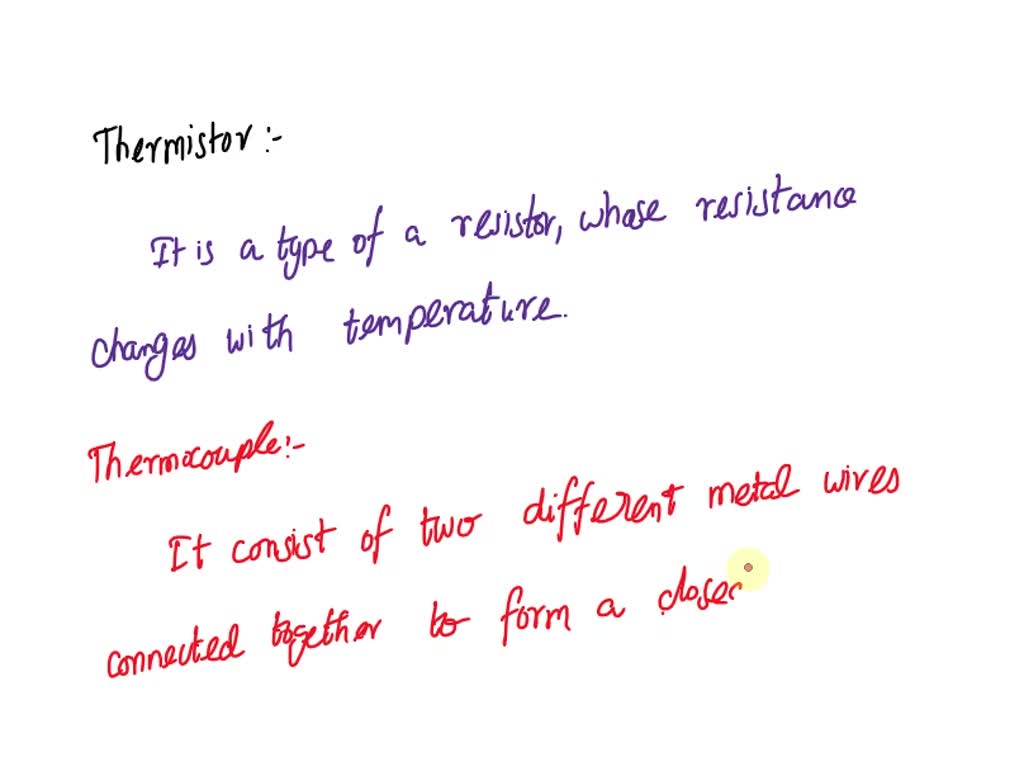 Thermistor:-
It is a type of a resistor, whose resistance
changes with temperature.
Thermocouple:-
It consist of two different metal wires
connected together to form a close